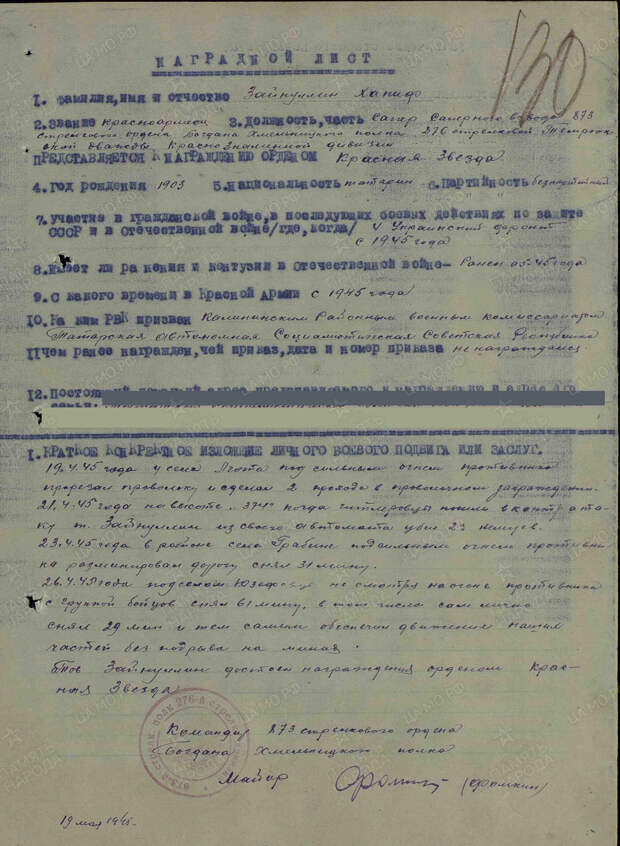 130
НАГРАДНОЙ ЛИСТ
1. Фамилия, имя и отчество Зайнуллин Ханиф
2. Звание красноармеец 3. Должность, часть Сапер Саперного взвода 873
стрелкового ордена Богдана Хмельницкого полка 276 стрелковой Темрюк-
ской дважды Краснознаменной дивизии
ПРЕДСТАВЛЯЕТСЯ К НАГРАЖДЕНИЮ ОРДЕНОМ Красная Звезда
4. Год рождения 1903 5. Национальность татарин 6. Партийность беспартийный
7. Участие в гражданской войне, в последующих боевых действиях по защите
СССР и в Отечественной войне /где, когда/ 4 Украинский фронт
с 1945 года
8. Имеет ли ранения и контузии в Отечественной войне - Ранен 05.45 года
9. С какого времени в Красной Армии с 1945 года
10. Каким РВК призван Калининским Районным военным комиссариатом
Татарская автономная Социалистическая Советская Республика
11 Чем ранее награжден, чей приказ, дата и номер приказа не награждался
12. Постоянный
1. КРАТКОЕ КОНКРЕТНОЕ ИЗЛОЖЕНИЕ ЛИЧНОГО БОЕВОГО ПОДВИГА ИЛИ ЗАСЛУГ.
19.4.45 года у села под сильным огнем противника
прорезал проволку и сделал 2 прохода в проволочном заграждении.
21.4.45 года на высоте когда гитлеровцы пошли в контр ата-
ку т. Зайнуллин из своего автомата убил 23 немцев.
23.4.45 года в районе села Грабине под сильным огнем противни-
ка разминировал дорогу снял 31 мину.
26.4.45 года под селом не смотря на огонь противника
с группой бойцов снял 61 мину, в том числе сам лично
снял 29 мин и тем самым обеспечил движение наших
частей без подрыва на минах.
Тов Зайнуллин достоен награждения орденом Крас-
ная Звезда
Командир 873 стрелкового ордена
Богдана Хмельницкого полка
Майор (Фомкин)
19 мая 1945г.